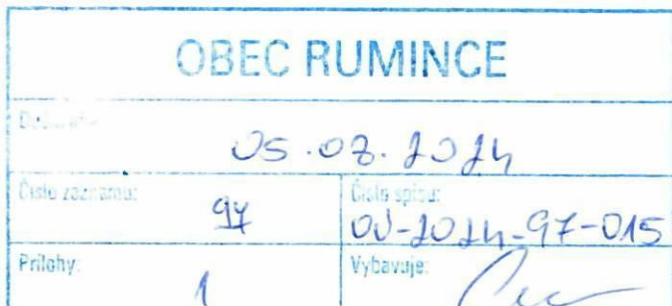 OBEC RUMINCE
05.08.2024
Číslo záznamu: Číslo spisu:
97 OÚ-2024-97-015
Prílohy: Vybavuje:
1